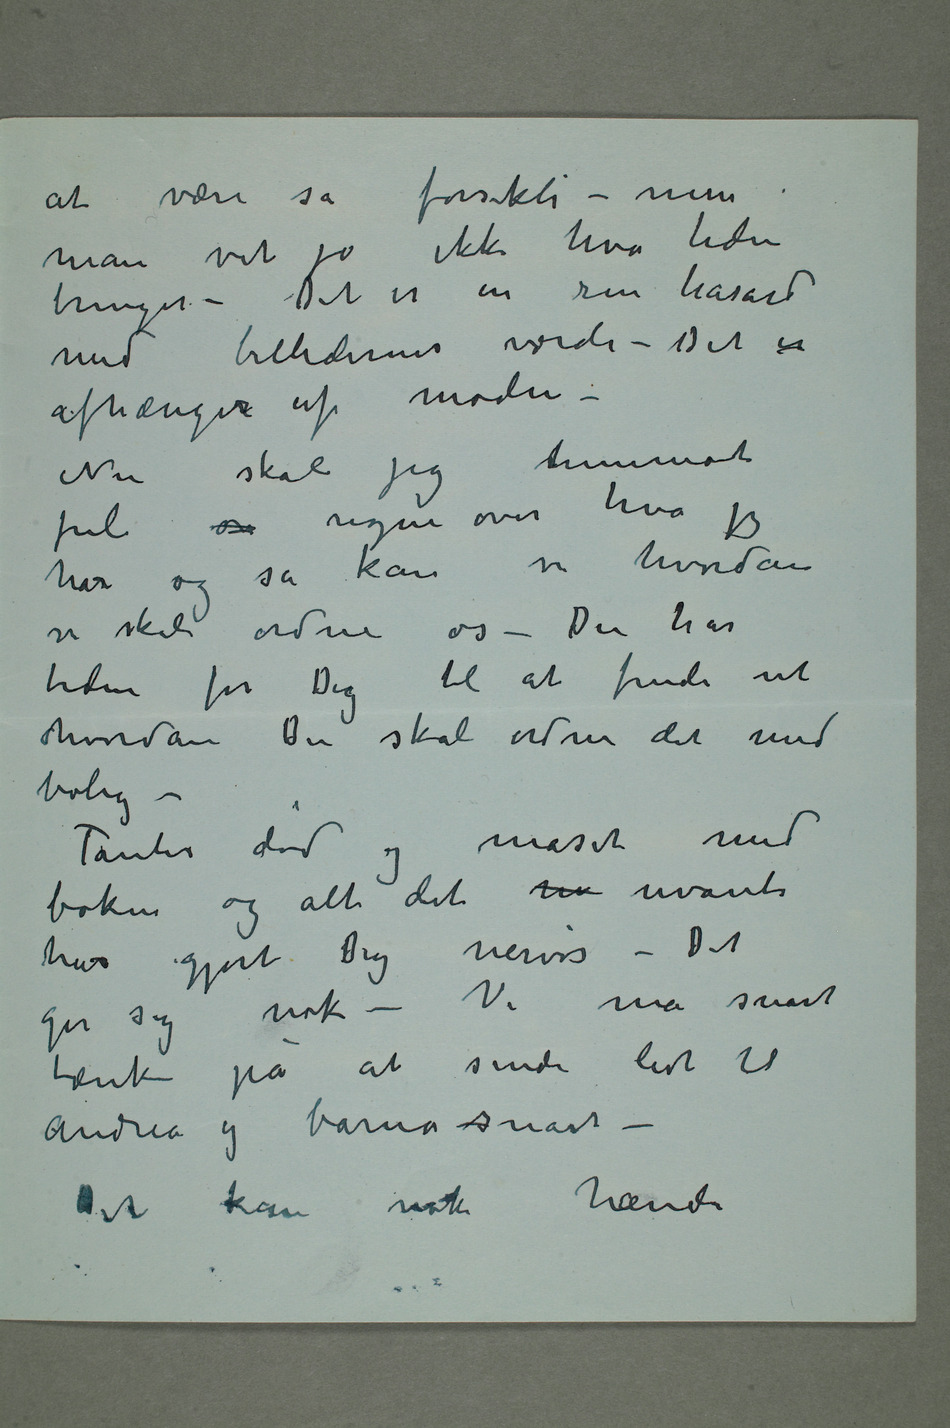 at være så forsikti – men
man vet jo ikke hva tiden
bringer – Det er en ren hasard
med billedernes værdi – Det er
afhænger af moden –
Nu skal jeg
regne over hva jeg
har og så kan vi hvordan
vi skal ordne os – Du har
tiden for Dig til at finde ut
hvordan Du skal ordne det med
bolig –
Tantes død og maset med
boken og alt det nu uvante
har gjort Dig nervøs – Det
ger sig nok – Vi må snart
tænke på at sende lidt til
Andrea og barna snart –
Det kan nok hænde